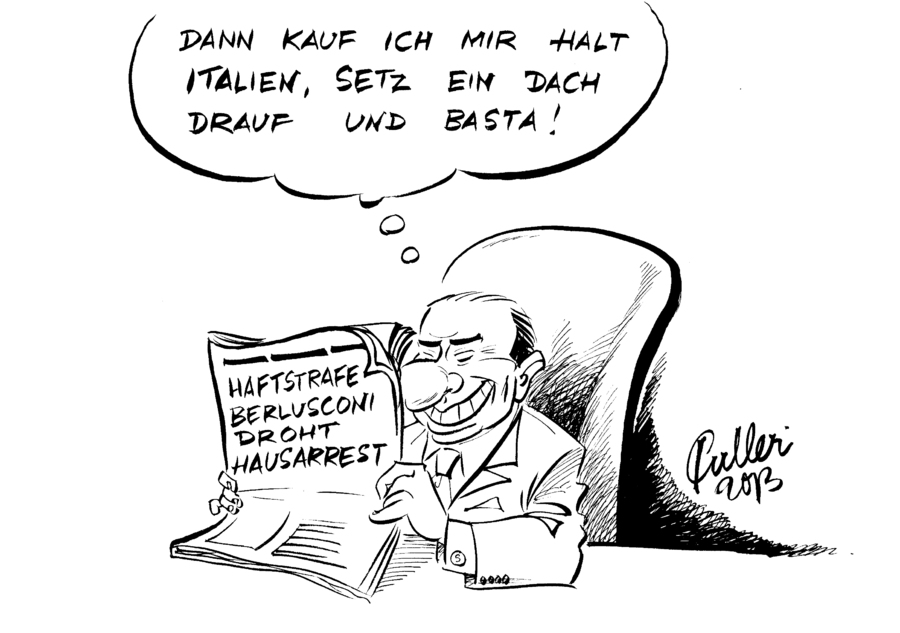 DANN KAUF ICH MIR HALT
ITALIEN, SETZ EIN DACH
DRAUF UND BASTA!
HAFTSTRAFE
BERLUSCONI
DROHT
HAUSARREST
S
2013